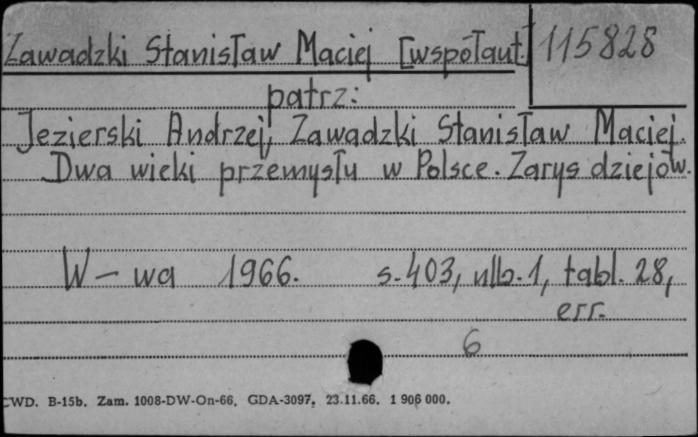 Zawadzki Stanisław Maciej [współaut.] 115828
patrz:
Jezierski Andrzej, Zawadzki Stanisław Maciej.
Dwa wieki przemysłu w Polsce. Zarys dziejów.
W-wa 1966. s. 403, nlb. 1, tabl. 28,
err.
6
CWD. B-15b. Zam. 1008-DW-On-66. GDA-3097. 23.11.66. 1 906 000.